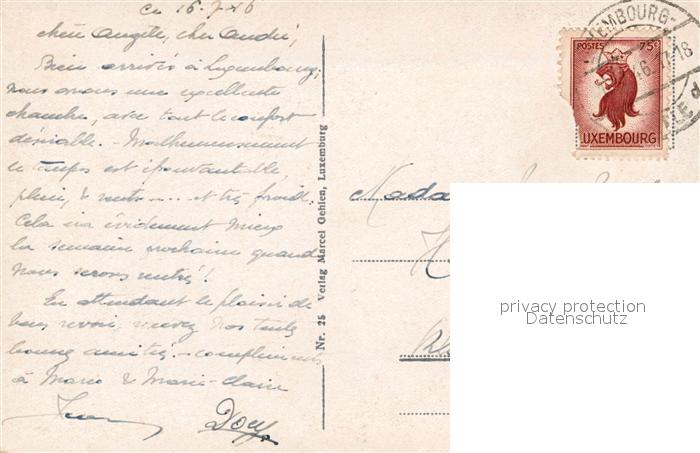 Ce 16.7.46
chère Angèle, cher André,
Bien arrivés à Luxembourg,
nous avons une excellente
chambre, avec tout le confort
désirable. Malheureusement
le temps est épouvantable,
pluie, & vents ..... et très froid.
Cela ira évidemment mieux
la semaine prochaine quand
nous serons rentrés!
En attendant le plaisir de
vous revoir, recevez nos toutes
bonnes amitiés. - compliments
à Mario & Marie-Claire
Dory
Nr. 25 Verlag Marcel Gehlen, Luxemburg
LUXEMBOURG-
POSTES 75c
LUXEMBOURG
Mada
privacy protection
Datenschutz